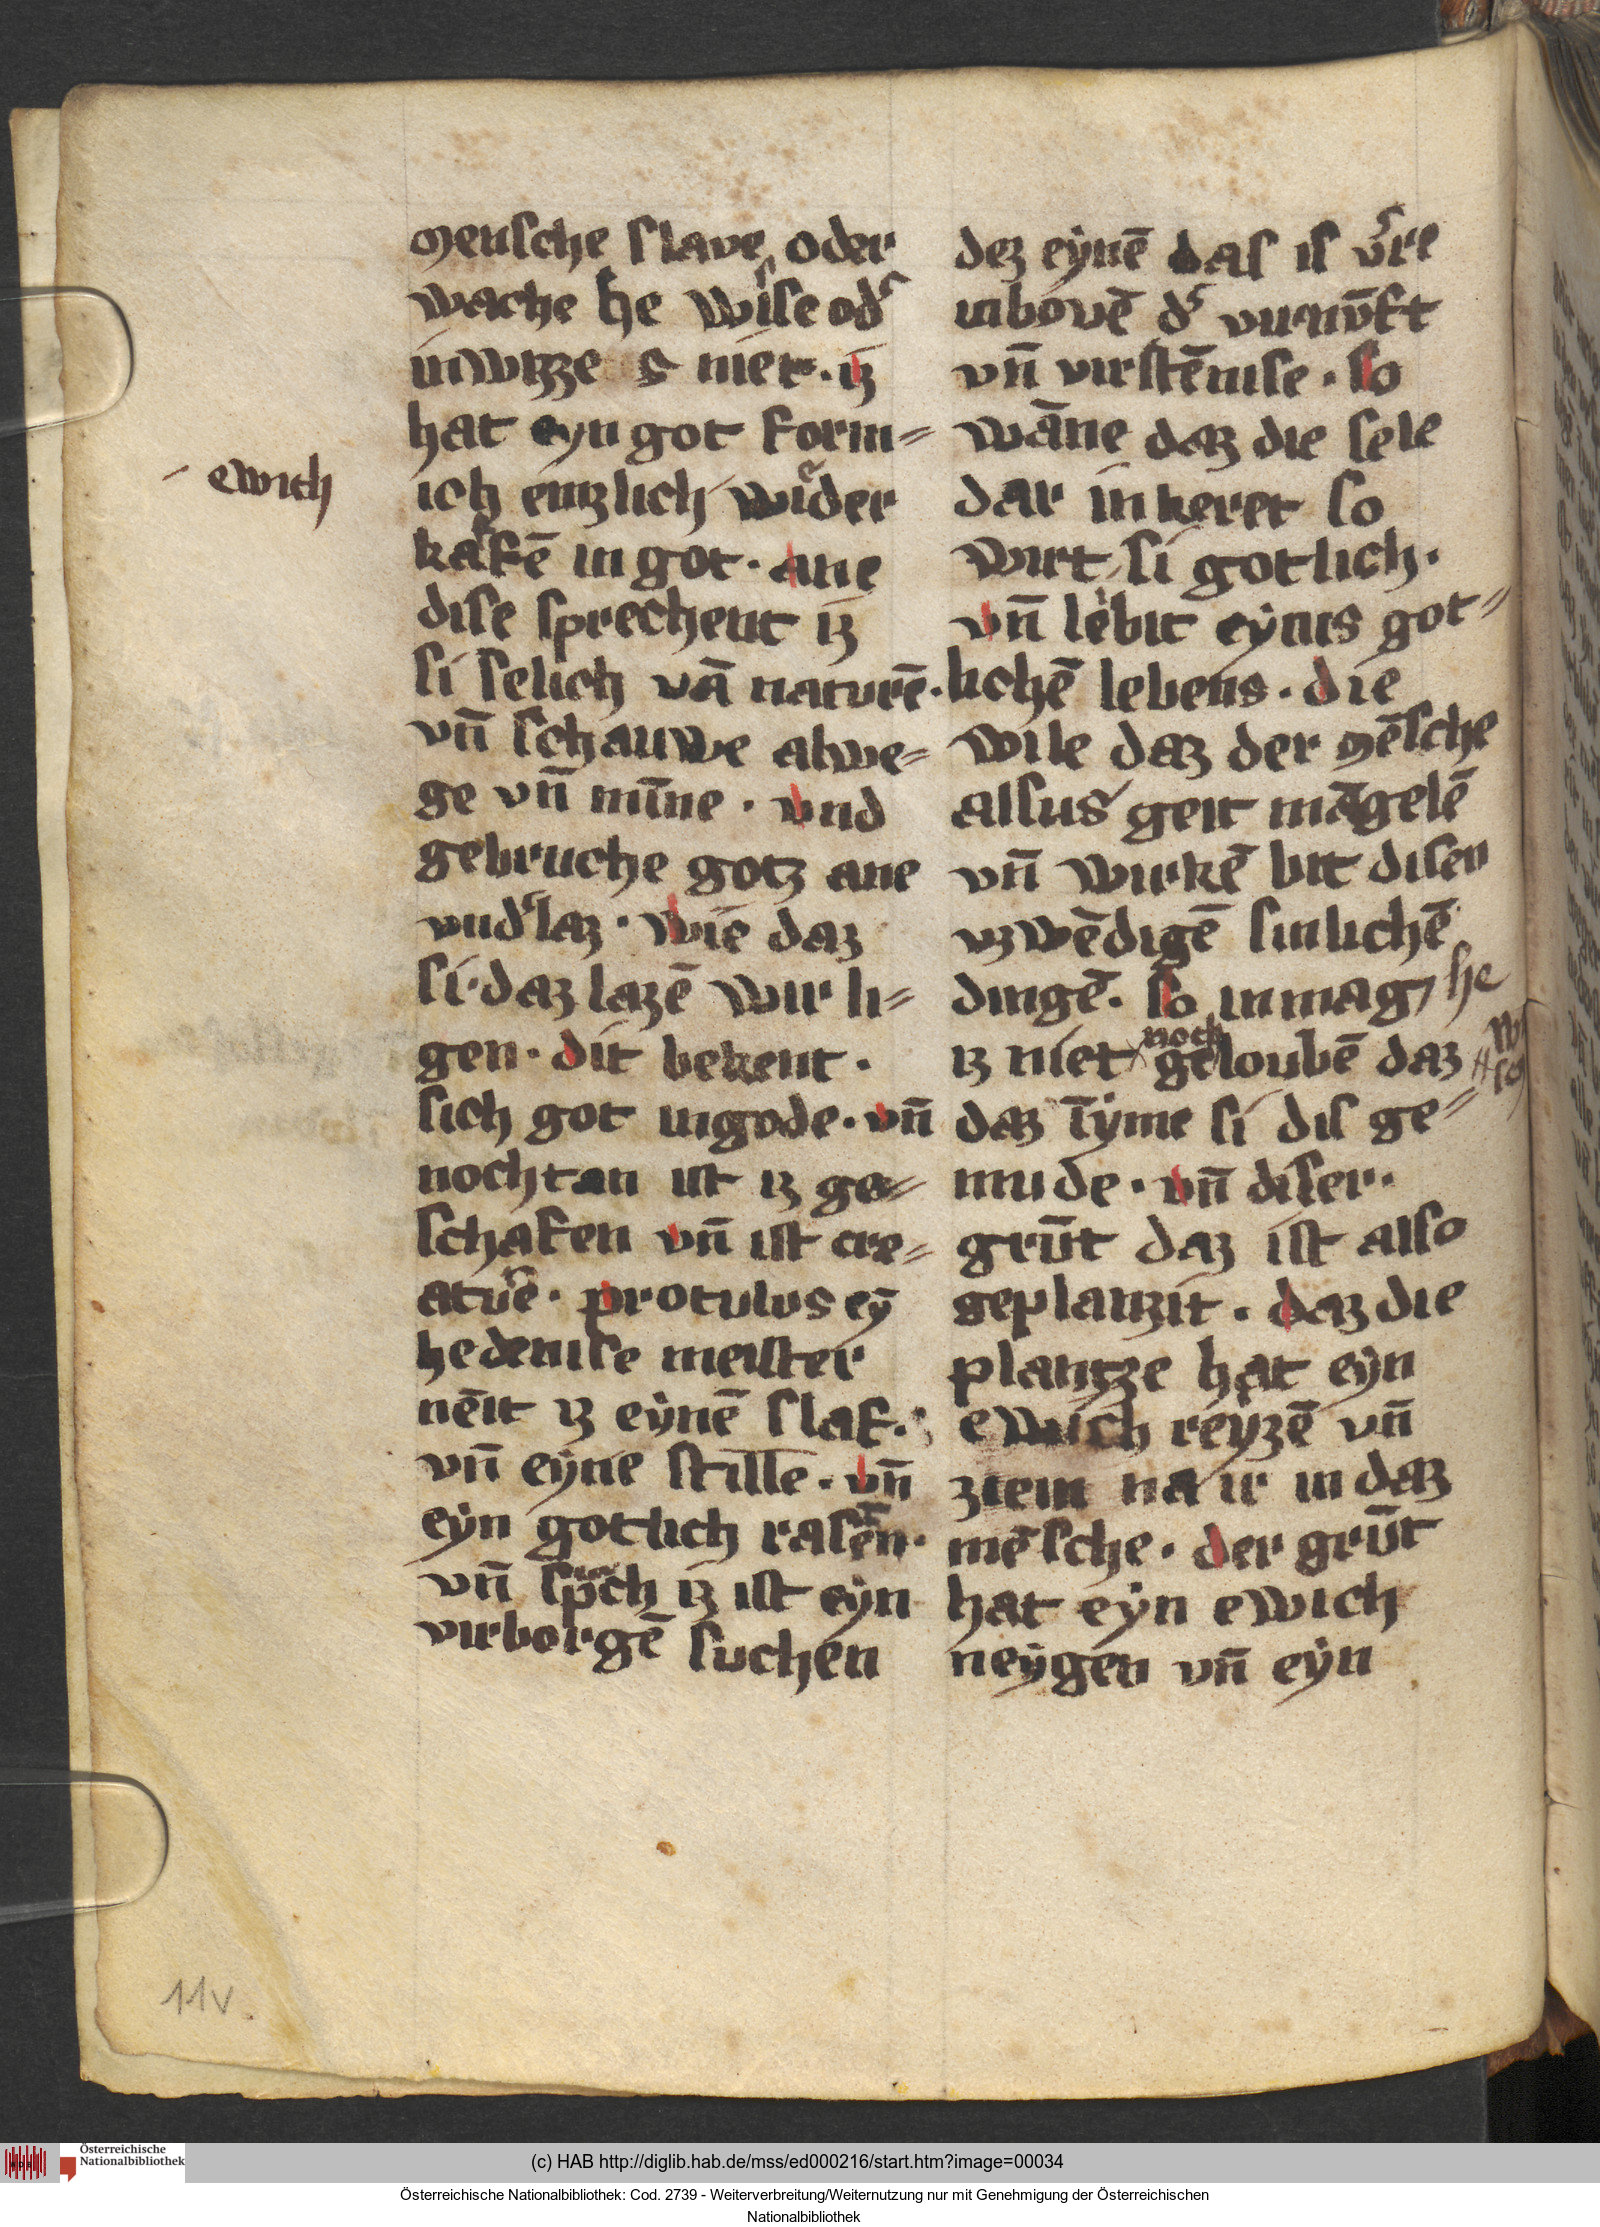 mensche slave oder
wache he wise od᷒
inwizze niet. iz
hat eyn got form=
ewich
ich ewzlich wider
kafē in got. ane
dise sprechent iz
si selich vā naturē.
vn̄ schauwe alwe=
ge vn̄ mīne. vnd
gebruche gotz ane
vnd᷒laz. wie daz
si. daz lazē wir li=
gen. dit bekent.
sich got ingode. vn̄
nochtan ist iz ge=
schafen vn̄ ist cre=
atuͤe. protulus eȳ
hedenise meister
nēit iz eynē slaf.
vn̄ eyne stille. vn̄
eyn gotlich rasen.
vn̄ spͥch iz ist eyn
virborgē suchen
dez eynē das is vͤre
inbovē d᷒ vurnv̄ft
vn̄ virstēnise. so
wāne daz die sele
dar in keret so
wirt si gotlich.
vn̄ lebit eynis got=
lichē lebens. die
wile daz der mēsche
alsus geit māgelē
vn̄ wirkē bit disen
vzwēdigē sinlichē
dingē. so inmag he
iz niet noch geloubē daz
daz īyme si dis ge=
mude. vn̄ diser.
grūt daz ist also
geplanzit. daz die
plantze hat eyn
ewich reyzē vn̄
ziem na ir in daz
mēsche. der grv̄t
hat eyn ewich
neygen vn̄ eyn
11v
Österreichische
Nationalbibliothek
(c) HAB http://diglib.hab.de/mss/ed000216/start.htm?image=00034
Österreichische Nationalbibliothek: Cod. 2739 - Weiterverbreitung/Weiternutzung nur mit Genehmigung der Österreichischen
Nationalbibliothek